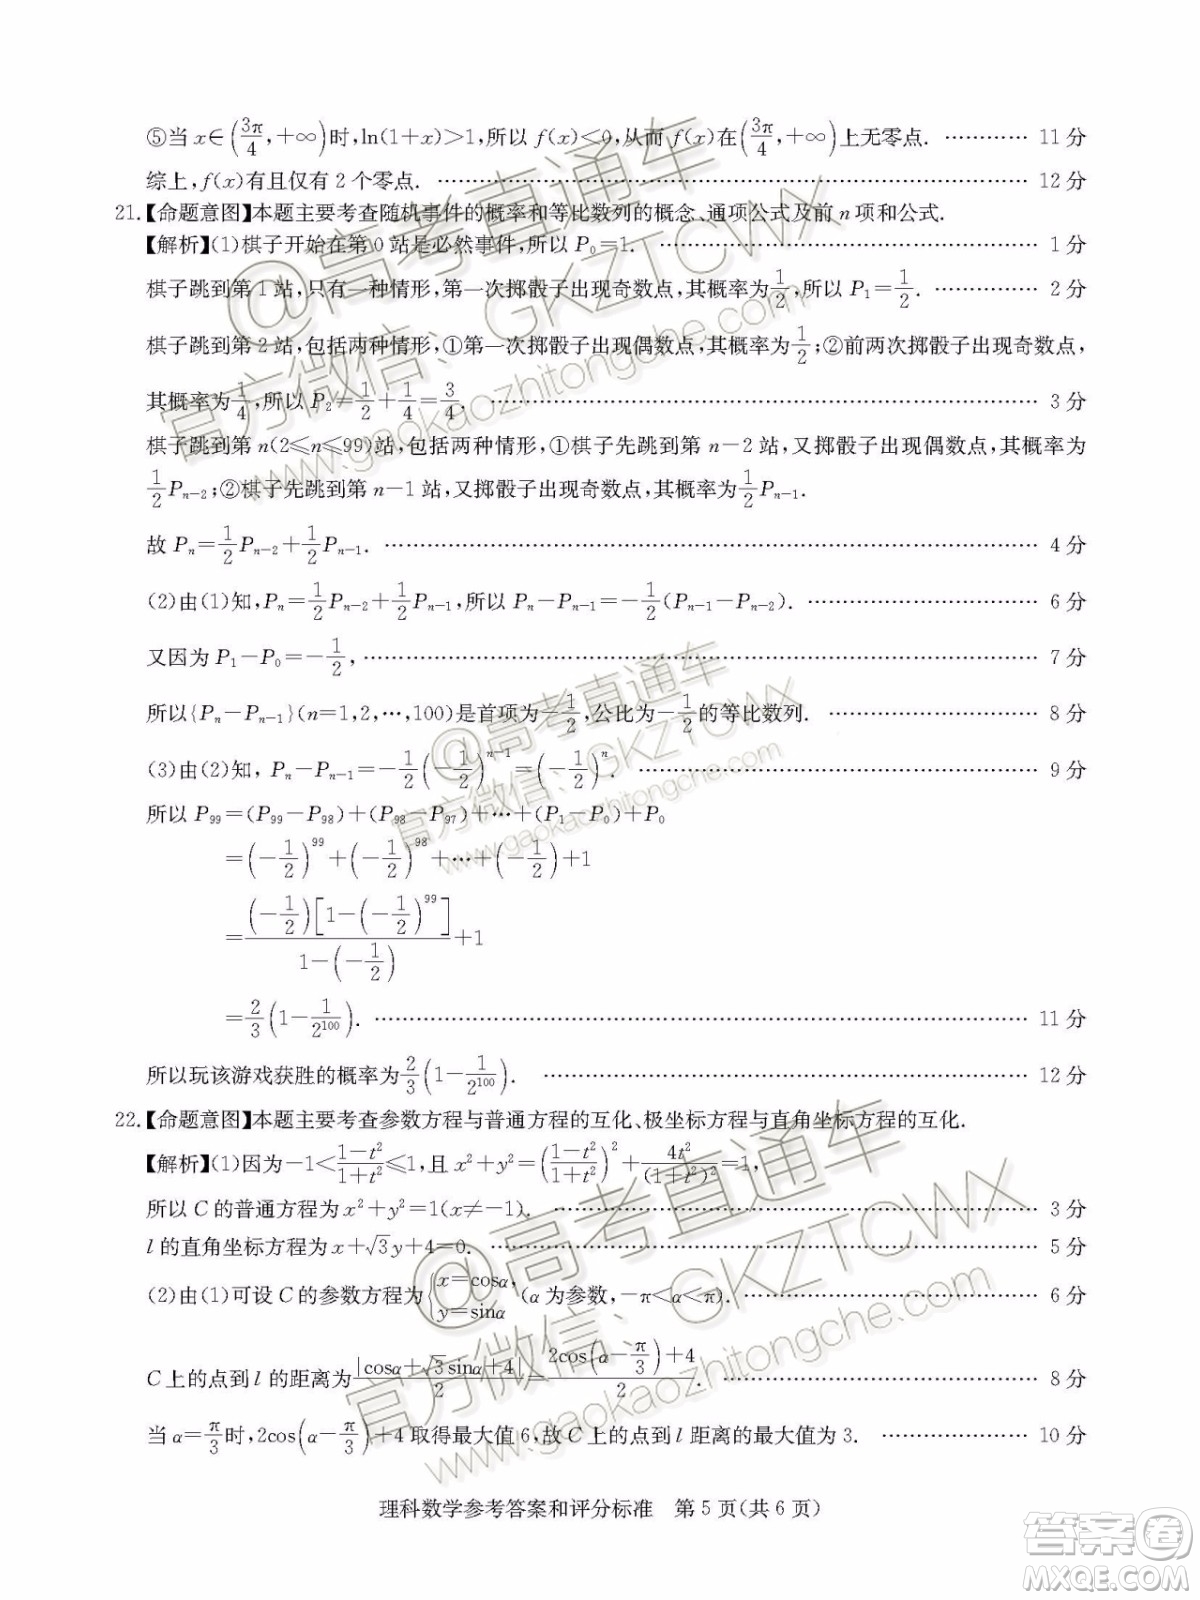 ⑤当 x∈(3π/4,+∞)时,ln(1+x)>1,所以 f(x)<0,从而 f(x)在(3π/4,+∞)上无零点. ………… 11 分
综上,f(x)有且仅有 2 个零点. ………… 12 分
21.【命题意图】本题主要考查随机事件的概率和等比数列的概念、通项公式及前 n 项和公式.
【解析】(1)棋子开始在第 0 站是必然事件,所以 P₀=1. ………… 1 分
棋子跳到第 1 站,只有一种情形,第一次掷骰子出现奇数点,其概率为1/2,所以 P₁=1/2. ………… 2 分
棋子跳到第 2 站,包括两种情形,①第一次掷骰子出现偶数点,其概率为1/2;②前两次掷骰子出现奇数点,
其概率为1/4,所以 P₂=1/2+1/4=3/4. ………… 3 分
棋子跳到第 n(2≤n≤99)站,包括两种情形,①棋子先跳到第 n−2 站,又掷骰子出现偶数点,其概率为
1/2Pₙ₋₂;②棋子先跳到第 n−1 站,又掷骰子出现奇数点,其概率为1/2Pₙ₋₁.
故 Pₙ=1/2Pₙ₋₂+1/2Pₙ₋₁. ………… 4 分
(2)由(1)知,Pₙ=1/2Pₙ₋₂+1/2Pₙ₋₁,所以 Pₙ−Pₙ₋₁=−1/2(Pₙ₋₁−Pₙ₋₂). ………… 6 分
又因为 P₁−P₀=−1/2, ………… 7 分
所以{Pₙ−Pₙ₋₁}(n=1,2,…,100)是首项为−1/2,公比为−1/2的等比数列. ………… 8 分
(3)由(2)知, Pₙ−Pₙ₋₁=−1/2(−1/2)ⁿ⁻¹=(−1/2)ⁿ. ………… 9 分
所以 P₉₉=(P₉₉−P₉₈)+(P₉₈−P₉₇)+…+(P₁−P₀)+P₀
=(−1/2)⁹⁹+(−1/2)⁹⁸+…+(−1/2)+1
=(−1/2)[1−(−1/2)⁹⁹]/(1−(−1/2))+1
=2/3(1−1/2¹⁰⁰). ………… 11 分
所以玩该游戏获胜的概率为2/3(1−1/2¹⁰⁰). ………… 12 分
22.【命题意图】本题主要考查参数方程与普通方程的互化、极坐标方程与直角坐标方程的互化.
【解析】(1)因为−1<(1−t²)/(1+t²)≤1,且 x²+y²=((1−t²)/(1+t²))²+4t²/(1+t²)²=1,
所以 C 的普通方程为 x²+y²=1(x≠−1). ………… 3 分
l 的直角坐标方程为 x+√3y+4=0. ………… 5 分
(2)由(1)可设 C 的参数方程为{x=cosα, y=sinα (α 为参数,−π<α<π). ………… 6 分
C 上的点到 l 的距离为|cosα+√3sinα+4|/2=(2cos(α−π/3)+4)/2. ………… 8 分
当 α=π/3时,2cos(α−π/3)+4 取得最大值 6,故 C 上的点到 l 距离的最大值为 3. ………… 10 分
理科数学参考答案和评分标准 第 5 页(共 6 页)
@高考直通车
官方微信:GKZTCWX
www.gaokaozhitongche.com
@高考直通车
官方微信:GKZTCWX
www.gaokaozhitongche.com
@高考直通车
官方微信:GKZTCWX
www.gaokaozhitongche.com
答案圈
MXQE.COM